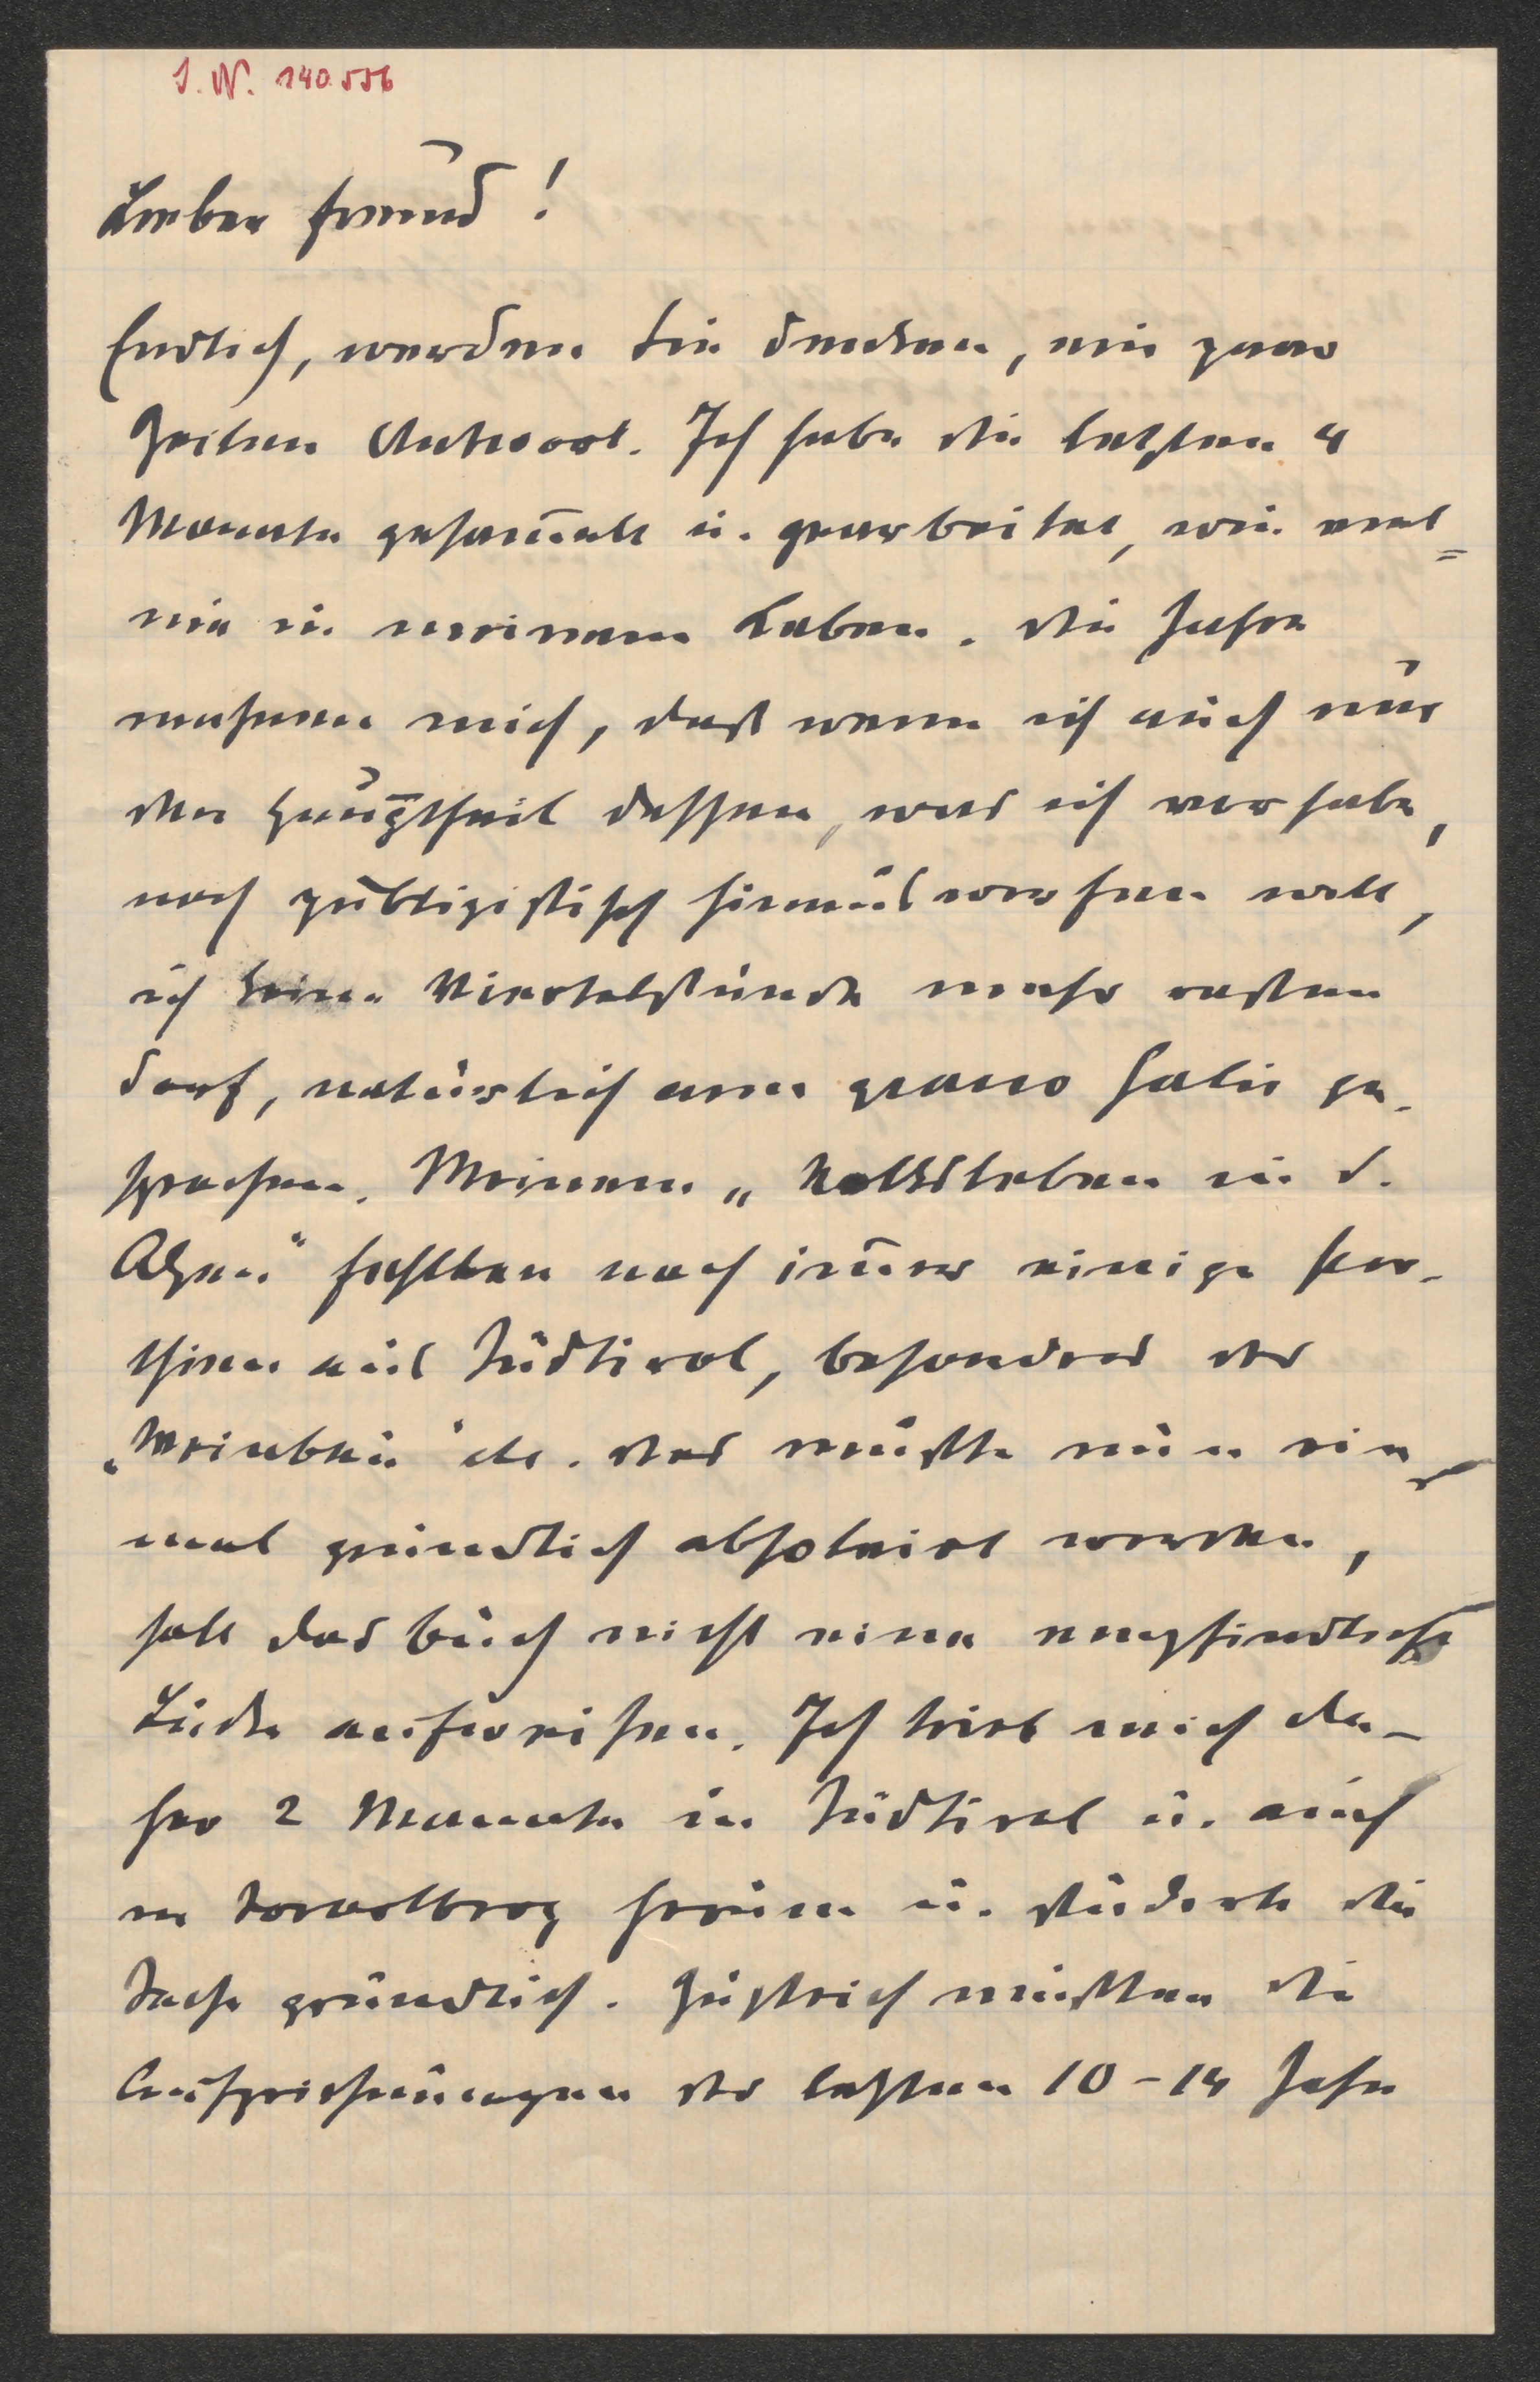 I. N. 140.556
Lieber Freund!
Endlich, werden Sie denken, ein paar
Zeilen Antwort. Ich habe die letzten 4
Monate gesam̄elt u. gearbeitet, wie viel=
nie in meinem Leben. Die Jahre
mahnen mich, daß wenn ich auch nur
den Haupttheil dessen, was ich vorhabe,
noch publizistisch hinauswerfen will,
ich keine Viertelstunde mehr rasten
darf, natürlich cum grano salis ge-
sprochen. Meinem „Volksleben in d.
Alpen" fehlten noch im̄er einige Par-
thien aus Südtirol, besonders der
„Weinbau" etc. Das mußte nun ein-
mal gründlich absolvirt werden,
soll das Buch nicht eine empfindliche
Lücke aufweisen. Ich trieb mich da-
her 2 Monate in Südtirol u. auch
in Vorarlberg herum u. studierte die
Sache gründlich. Zugleich mußten die
Aufzeichnungen der letzten 10-14 Jahre